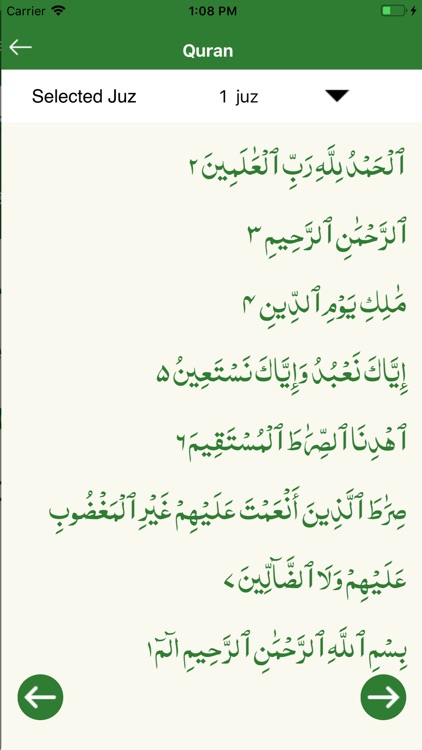 Carrier 1:08 PM
Quran
Selected Juz 1 juz
ٱلْحَمْدُ لِلَّهِ رَبِّ ٱلْعَٰلَمِينَ ٢
ٱلرَّحْمَٰنِ ٱلرَّحِيمِ ٣
مَٰلِكِ يَوْمِ ٱلدِّينِ ۴
إِيَّاكَ نَعْبُدُ وَإِيَّاكَ نَسْتَعِينُ ۵
ٱهْدِنَا ٱلصِّرَٰطَ ٱلْمُسْتَقِيمَ ٦
صِرَٰطَ ٱلَّذِينَ أَنْعَمْتَ عَلَيْهِمْ غَيْرِ ٱلْمَغْضُوبِ
عَلَيْهِمْ وَلَا ٱلضَّآلِّينَ ٧
بِسْمِ ٱللَّهِ ٱلرَّحْمَٰنِ ٱلرَّحِيمِ الٓمٓ ١